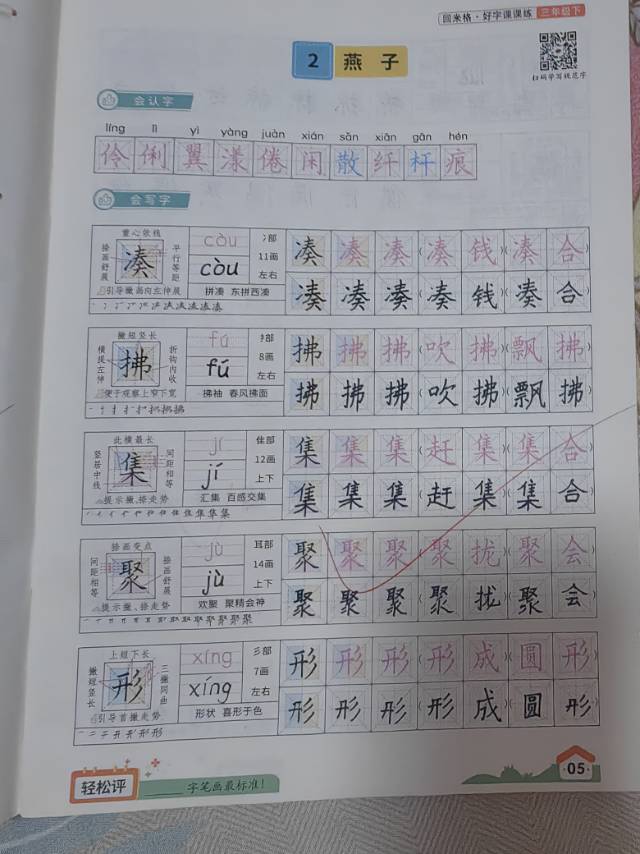 田米格·好字课课练 三年级下
2 燕子
扫码学写规范字
会认字
líng lì yì yàng juàn xián sǎn xiān gān hén
伶 俐 翼 漾 倦 闲 散 纤 杆 痕
会写字
重心依线
捺画舒展 凑 平行等距
引导撇画向左伸展
còu
còu
冫部
11画
左右
拼凑 东拼西凑
凑 凑 凑 (凑 钱)(凑 合)
凑 凑 凑 (凑 钱)(凑 合)
撇短竖长
横提左伸 拂 折钩内收
便于观察上窄下宽
fú
fú
扌部
8画
左右
拂袖 春风拂面
拂 拂 拂 (吹 拂)(飘 拂)
拂 拂 拂 (吹 拂)(飘 拂)
此横最长
竖居中线 集 间距相等
提示撇、捺走势
jí
jí
隹部
12画
上下
汇集 百感交集
集 集 集 (赶 集)(集 合)
集 集 集 (赶 集)(集 合)
捺画变点
间距相等 聚 捺画舒展
提示撇、捺走势
jù
jù
耳部
14画
上下
欢聚 聚精会神
聚 聚 聚 (聚 拢)(聚 会)
聚 聚 聚 (聚 拢)(聚 会)
上短下长
撇短竖长 形 三撇同曲
引导首撇走势
xíng
xíng
彡部
7画
左右
形状 喜形于色
形 形 形 (形 成)(圆 形)
形 形 形 (形 成)(圆 形)
轻松评 ______字笔画最标准!
·05·